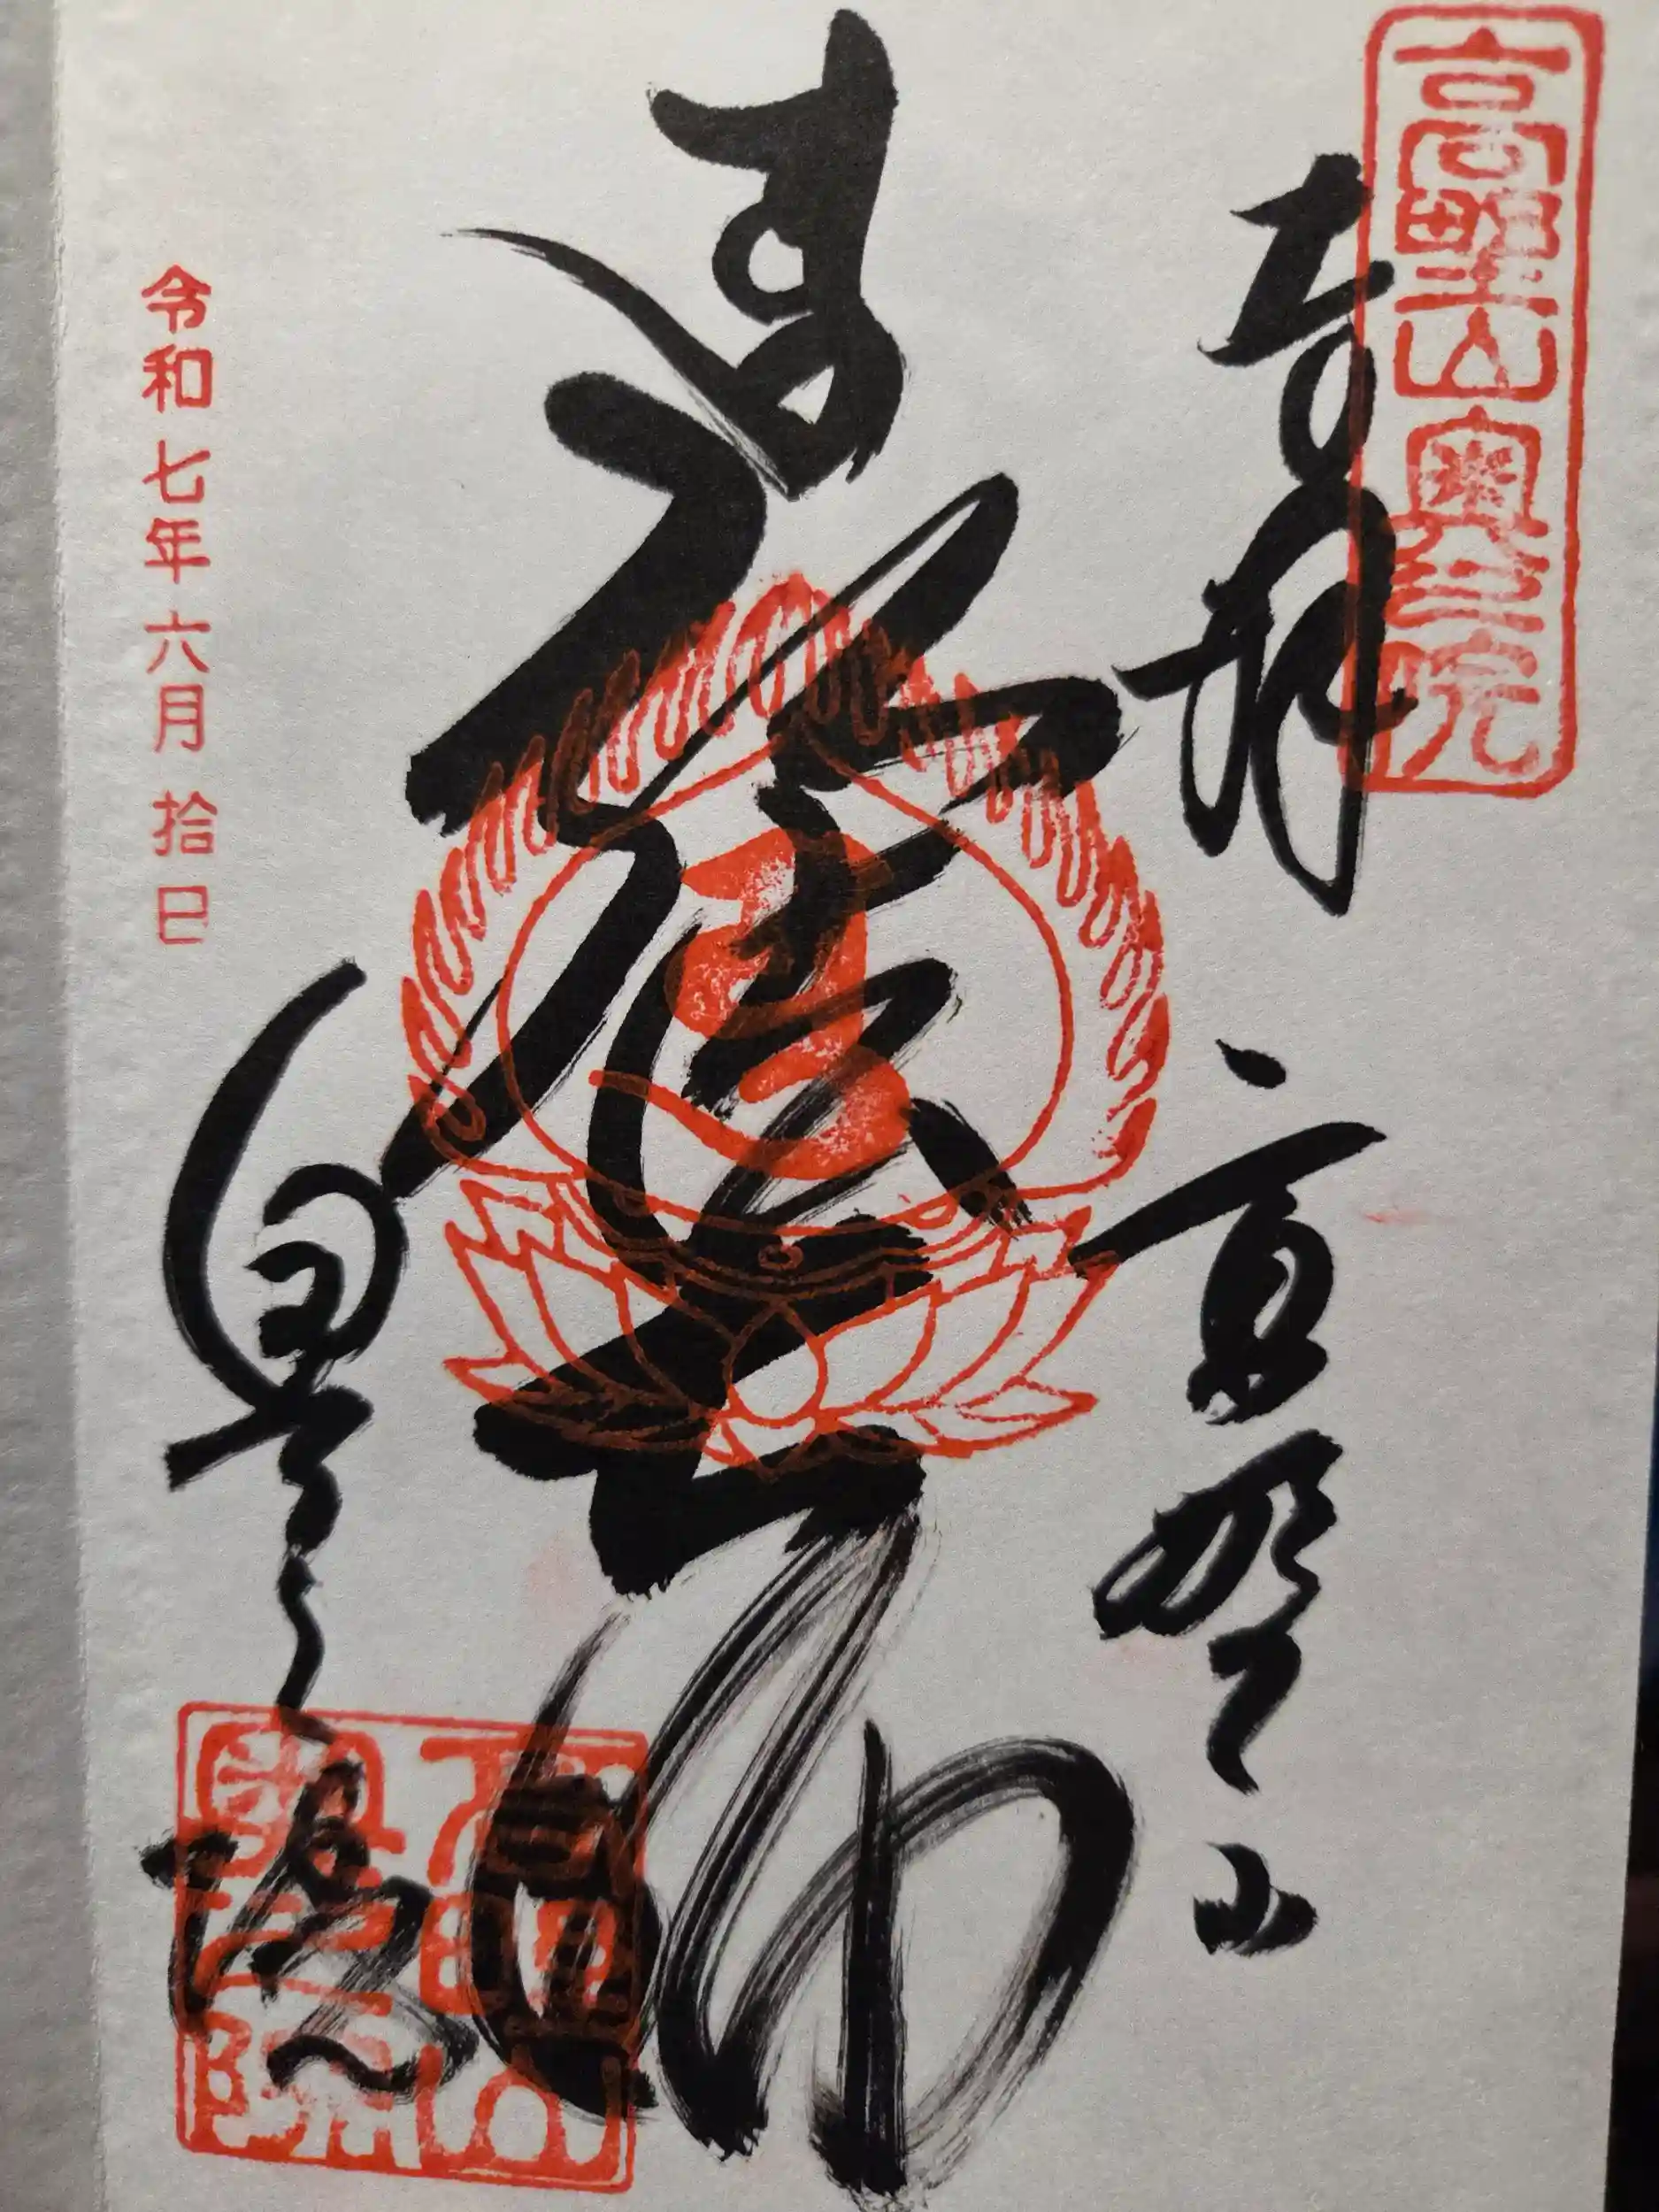 高野山奥之院
奉拝 高野山
弘法大師
奥之院
令和七年六月拾日
高野山
奥之院